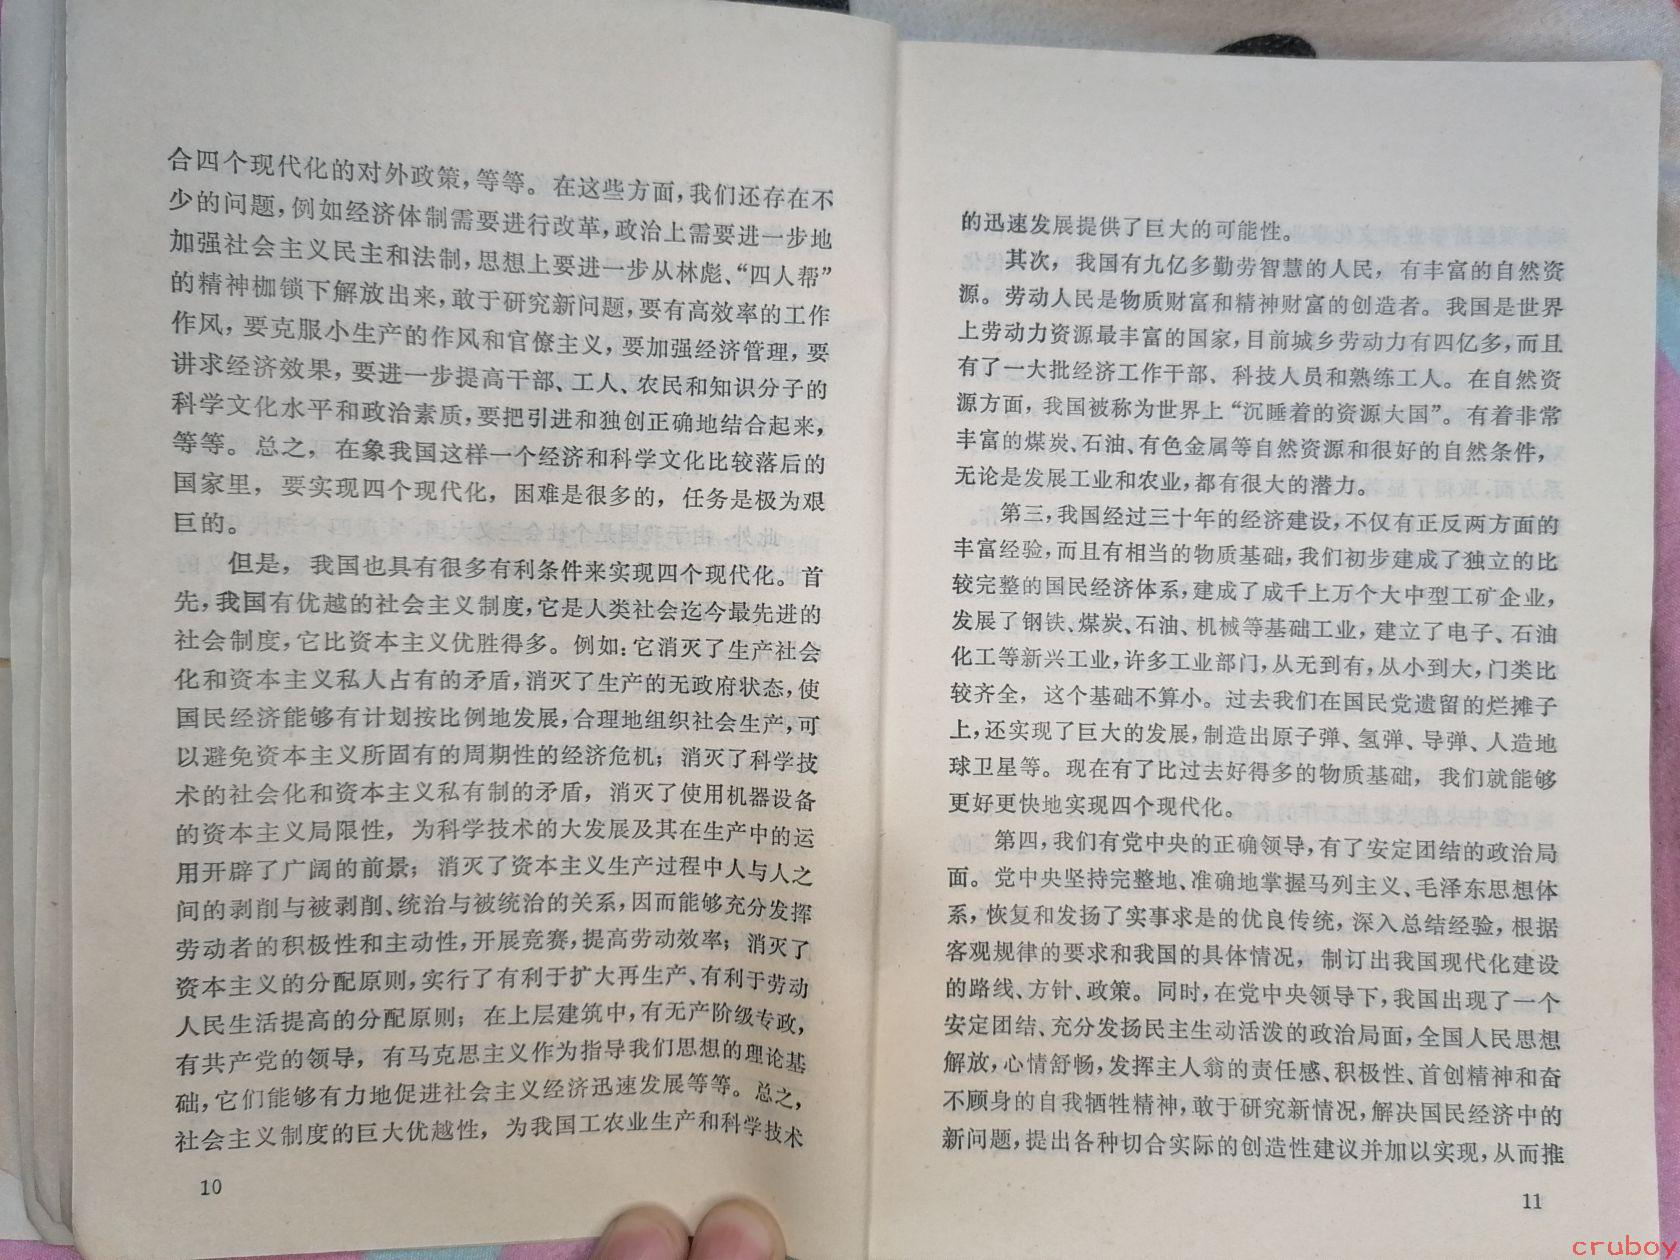 合四个现代化的对外政策，等等。在这些方面，我们还存在不
少的问题，例如经济体制需要进行改革，政治上需要进一步地
加强社会主义民主和法制，思想上要进一步从林彪、“四人帮”
的精神枷锁下解放出来，敢于研究新问题，要有高效率的工作
作风，要克服小生产的作风和官僚主义，要加强经济管理，要
讲求经济效果，要进一步提高干部、工人、农民和知识分子的
科学文化水平和政治素质，要把引进和独创正确地结合起来，
等等。总之，在象我国这样一个经济和科学文化比较落后的
国家里，要实现四个现代化，困难是很多的，任务是极为艰
巨的。
但是，我国也具有很多有利条件来实现四个现代化。首
先，我国有优越的社会主义制度，它是人类社会迄今最先进的
社会制度，它比资本主义优胜得多。例如：它消灭了生产社会
化和资本主义私人占有的矛盾，消灭了生产的无政府状态，使
国民经济能够有计划按比例地发展，合理地组织社会生产，可
以避免资本主义所固有的周期性的经济危机；消灭了科学技
术的社会化和资本主义私有制的矛盾，消灭了使用机器设备
的资本主义局限性，为科学技术的大发展及其在生产中的运
用开辟了广阔的前景；消灭了资本主义生产过程中人与人之
间的剥削与被剥削、统治与被统治的关系，因而能够充分发挥
劳动者的积极性和主动性，开展竞赛，提高劳动效率；消灭了
资本主义的分配原则，实行了有利于扩大再生产、有利于劳动
人民生活提高的分配原则；在上层建筑中，有无产阶级专政，
有共产党的领导，有马克思主义作为指导我们思想的理论基
础，它们能够有力地促进社会主义经济迅速发展等等。总之，
社会主义制度的巨大优越性，为我国工农业生产和科学技术
10
的迅速发展提供了巨大的可能性。
其次，我国有九亿多勤劳智慧的人民，有丰富的自然资
源。劳动人民是物质财富和精神财富的创造者。我国是世界
上劳动力资源最丰富的国家，目前城乡劳动力有四亿多，而且
有了一大批经济工作干部、科技人员和熟练工人。在自然资
源方面，我国被称为世界上“沉睡着的资源大国”。有着非常
丰富的煤炭、石油、有色金属等自然资源和很好的自然条件，
无论是发展工业和农业，都有很大的潜力。
第三，我国经过三十年的经济建设，不仅有正反两方面的
丰富经验，而且有相当的物质基础，我们初步建成了独立的比
较完整的国民经济体系，建成了成千上万个大中型工矿企业，
发展了钢铁、煤炭、石油、机械等基础工业，建立了电子、石油
化工等新兴工业，许多工业部门，从无到有，从小到大，门类比
较齐全，这个基础不算小。过去我们在国民党遗留的烂摊子
上，还实现了巨大的发展，制造出原子弹、氢弹、导弹、人造地
球卫星等。现在有了比过去好得多的物质基础，我们就能够
更好更快地实现四个现代化。
第四，我们有党中央的正确领导，有了安定团结的政治局
面。党中央坚持完整地、准确地掌握马列主义、毛泽东思想体
系，恢复和发扬了实事求是的优良传统，深入总结经验，根据
客观规律的要求和我国的具体情况，制订出我国现代化建设
的路线、方针、政策。同时，在党中央领导下，我国出现了一个
安定团结、充分发扬民主生动活泼的政治局面，全国人民思想
解放，心情舒畅，发挥主人翁的责任感、积极性、首创精神和奋
不顾身的自我牺牲精神，敢于研究新情况，解决国民经济中的
新问题，提出各种切合实际的创造性建议并加以实现，从而推
11
cruboy